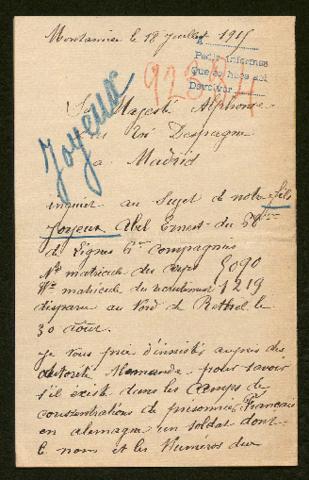 Montanier le 18 Juillet 1915
A
Pedir informes
Que se hace aoi
Devolver
92384
Joyeux
Sa Majesté Alphonse
Roi Despagne
a Madrid
inquiet au sujet de notre fils
Joyeux Abel Ernest du 56
de lignes 6me compagnie
No matricule du corps 5090
No matricule du recrutement 1219
disparu au Nord de Rethel le
30 août.
Je vous prie d'insister auprès des
autorité Allemande pour savoir
s'il existe dans les camps de
concentrations de prisonnies Français
en alemagne un soldat dont
le nom et les Numéros du